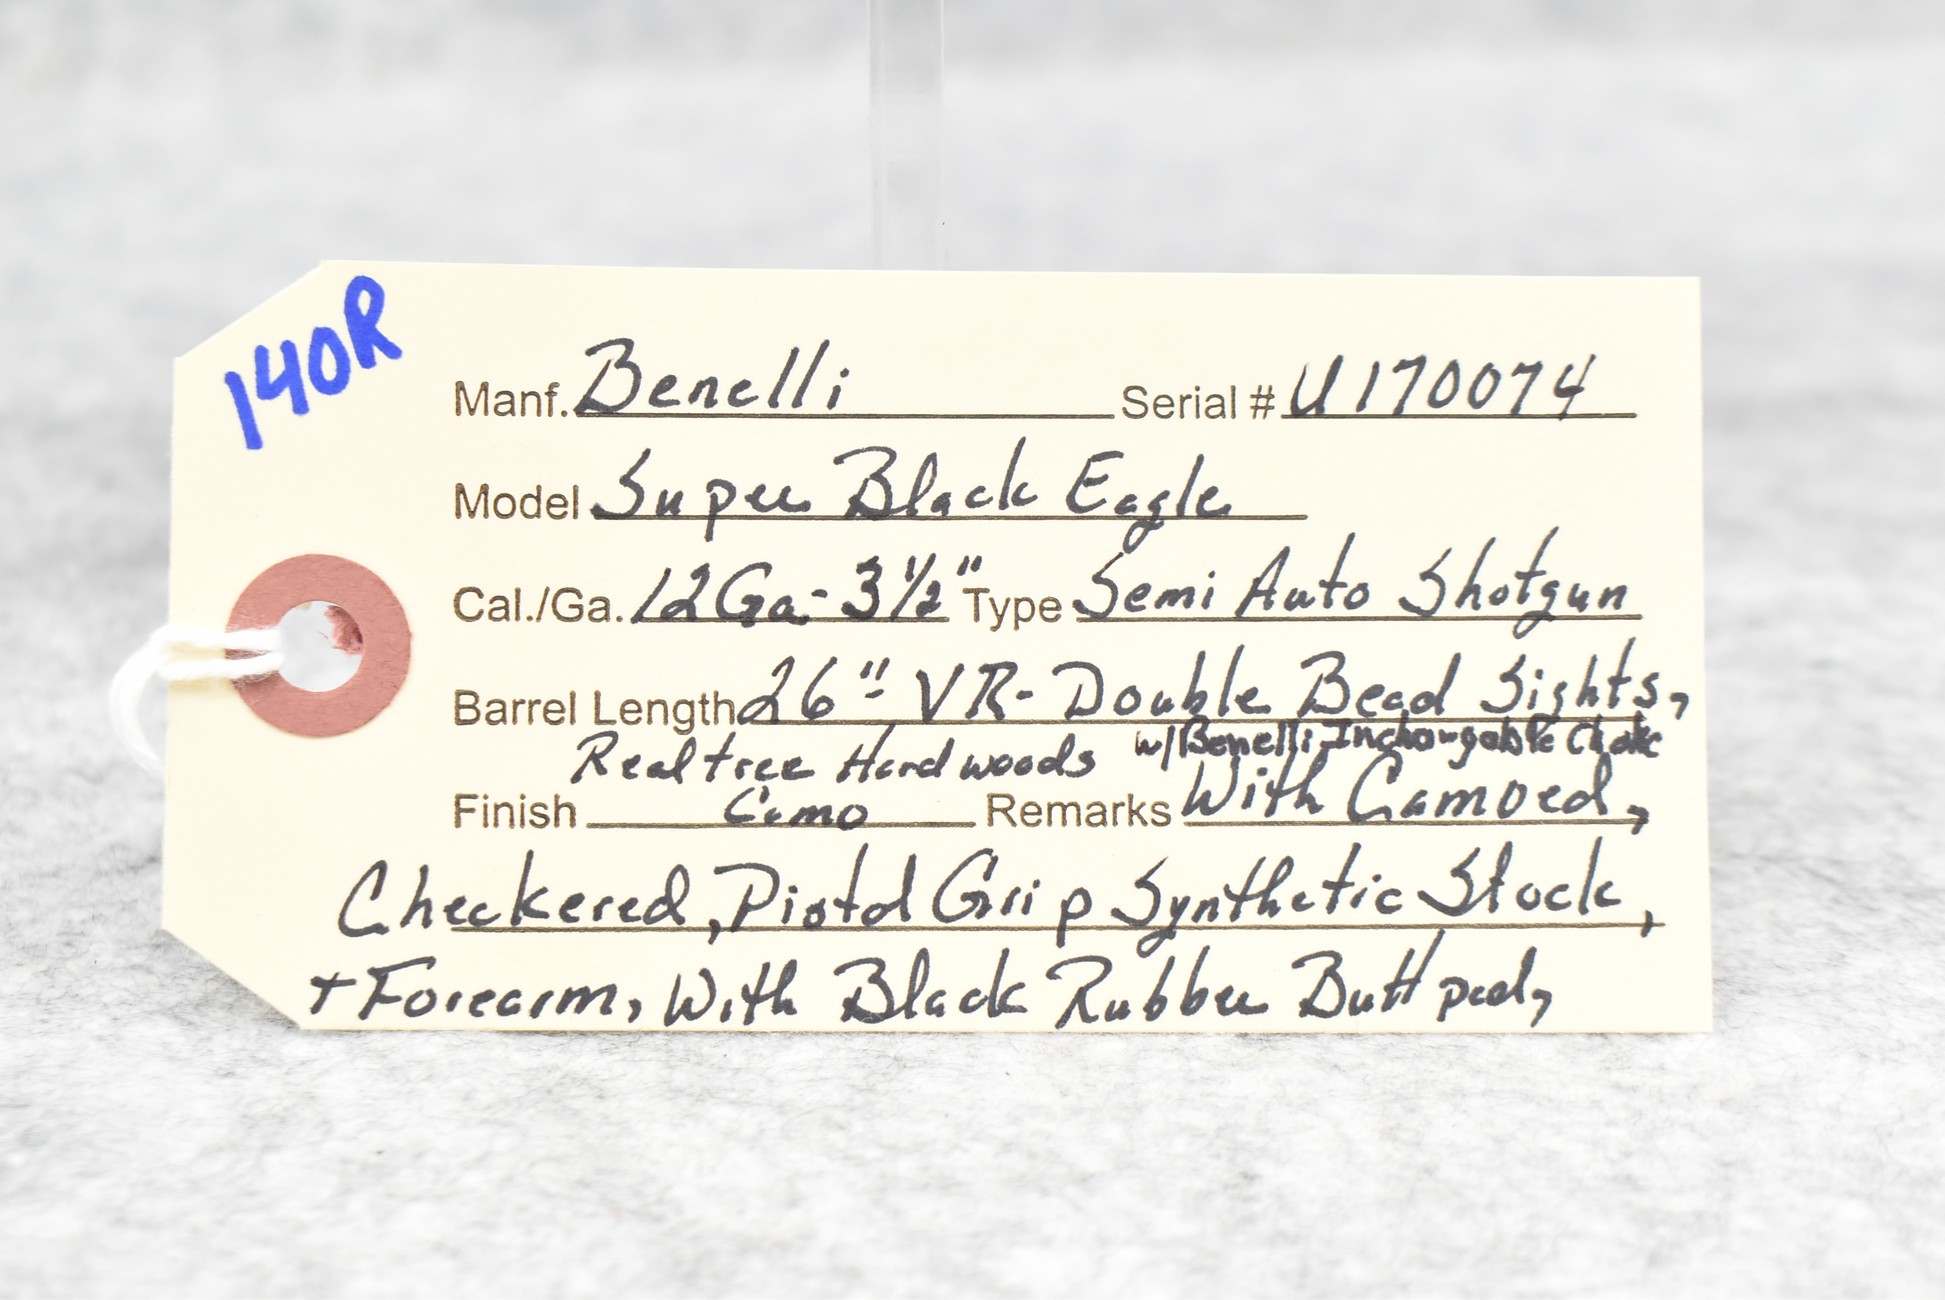 140R
Manf. Benelli Serial # U170074
Model Super Black Eagle
Cal./Ga. 12Ga- 3½" Type Semi Auto Shotgun
Barrel Length 26"- VR- Double Bead Sights,
w/Benelli Inchangable Choke
Realtree Hardwoods
Finish Camo Remarks With Camoed,
Checkered, Pistol Grip Synthetic Stock,
+ Forearm, With Black Rubber Butt pad,